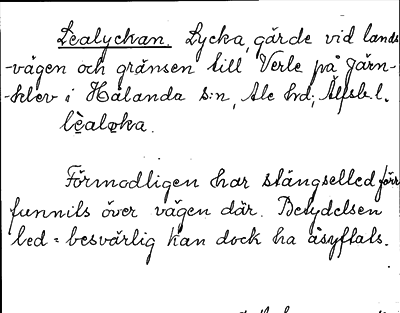 Lealyckan. Lycka, gärde vid lands
-vägen och gränsen till Verle på Järn-
-klev i Hålanda s:n, Ale hd; Älfsb.l.
lèaløka.
Förmodligen har stängselled förr
funnits över vägen där. Betydelsen
led = besvärlig kan dock ha åsyftats.